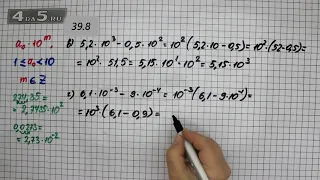 4DA5.RU
39.8
a₀ · 10ᵐ
1 ≤ a₀ < 10
m ∈ Z
274,35 =
= 2,7435 · 10²
0,0273 =
= 2,73 · 10⁻²
в) 5,2 · 10³ − 0,5 · 10² = 10² (5,2 · 10 − 0,5) = 10² · (52 − 0,5) =
= 10² · 51,5 = 5,15 · 10¹ · 10² = 5,15 · 10³
г) 6,1 · 10⁻³ − 9 · 10⁻⁴ = 10⁻³ (6,1 − 9 · 10⁻¹) =
= 10⁻³ (6,1 − 0,9) =